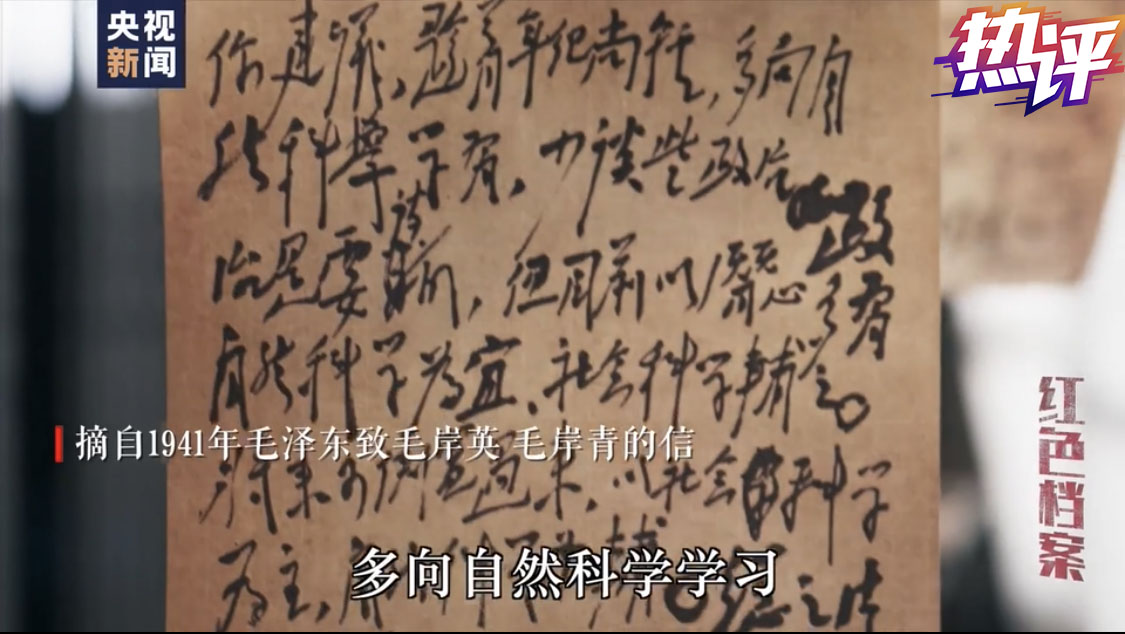 央视
新闻
热评
你建议,趁着年纪尚轻,多向自
然科学学習,少谈些政治。政
治是要谈的,但目前以潜心多習
自然科学为宜,社会科学辅之。
摘自1941年毛泽东致毛岸英 毛岸青的信
将来可倒置过来,以社会科学
为主,自然科学为辅。总之注
多向自然科学学习
红色档案